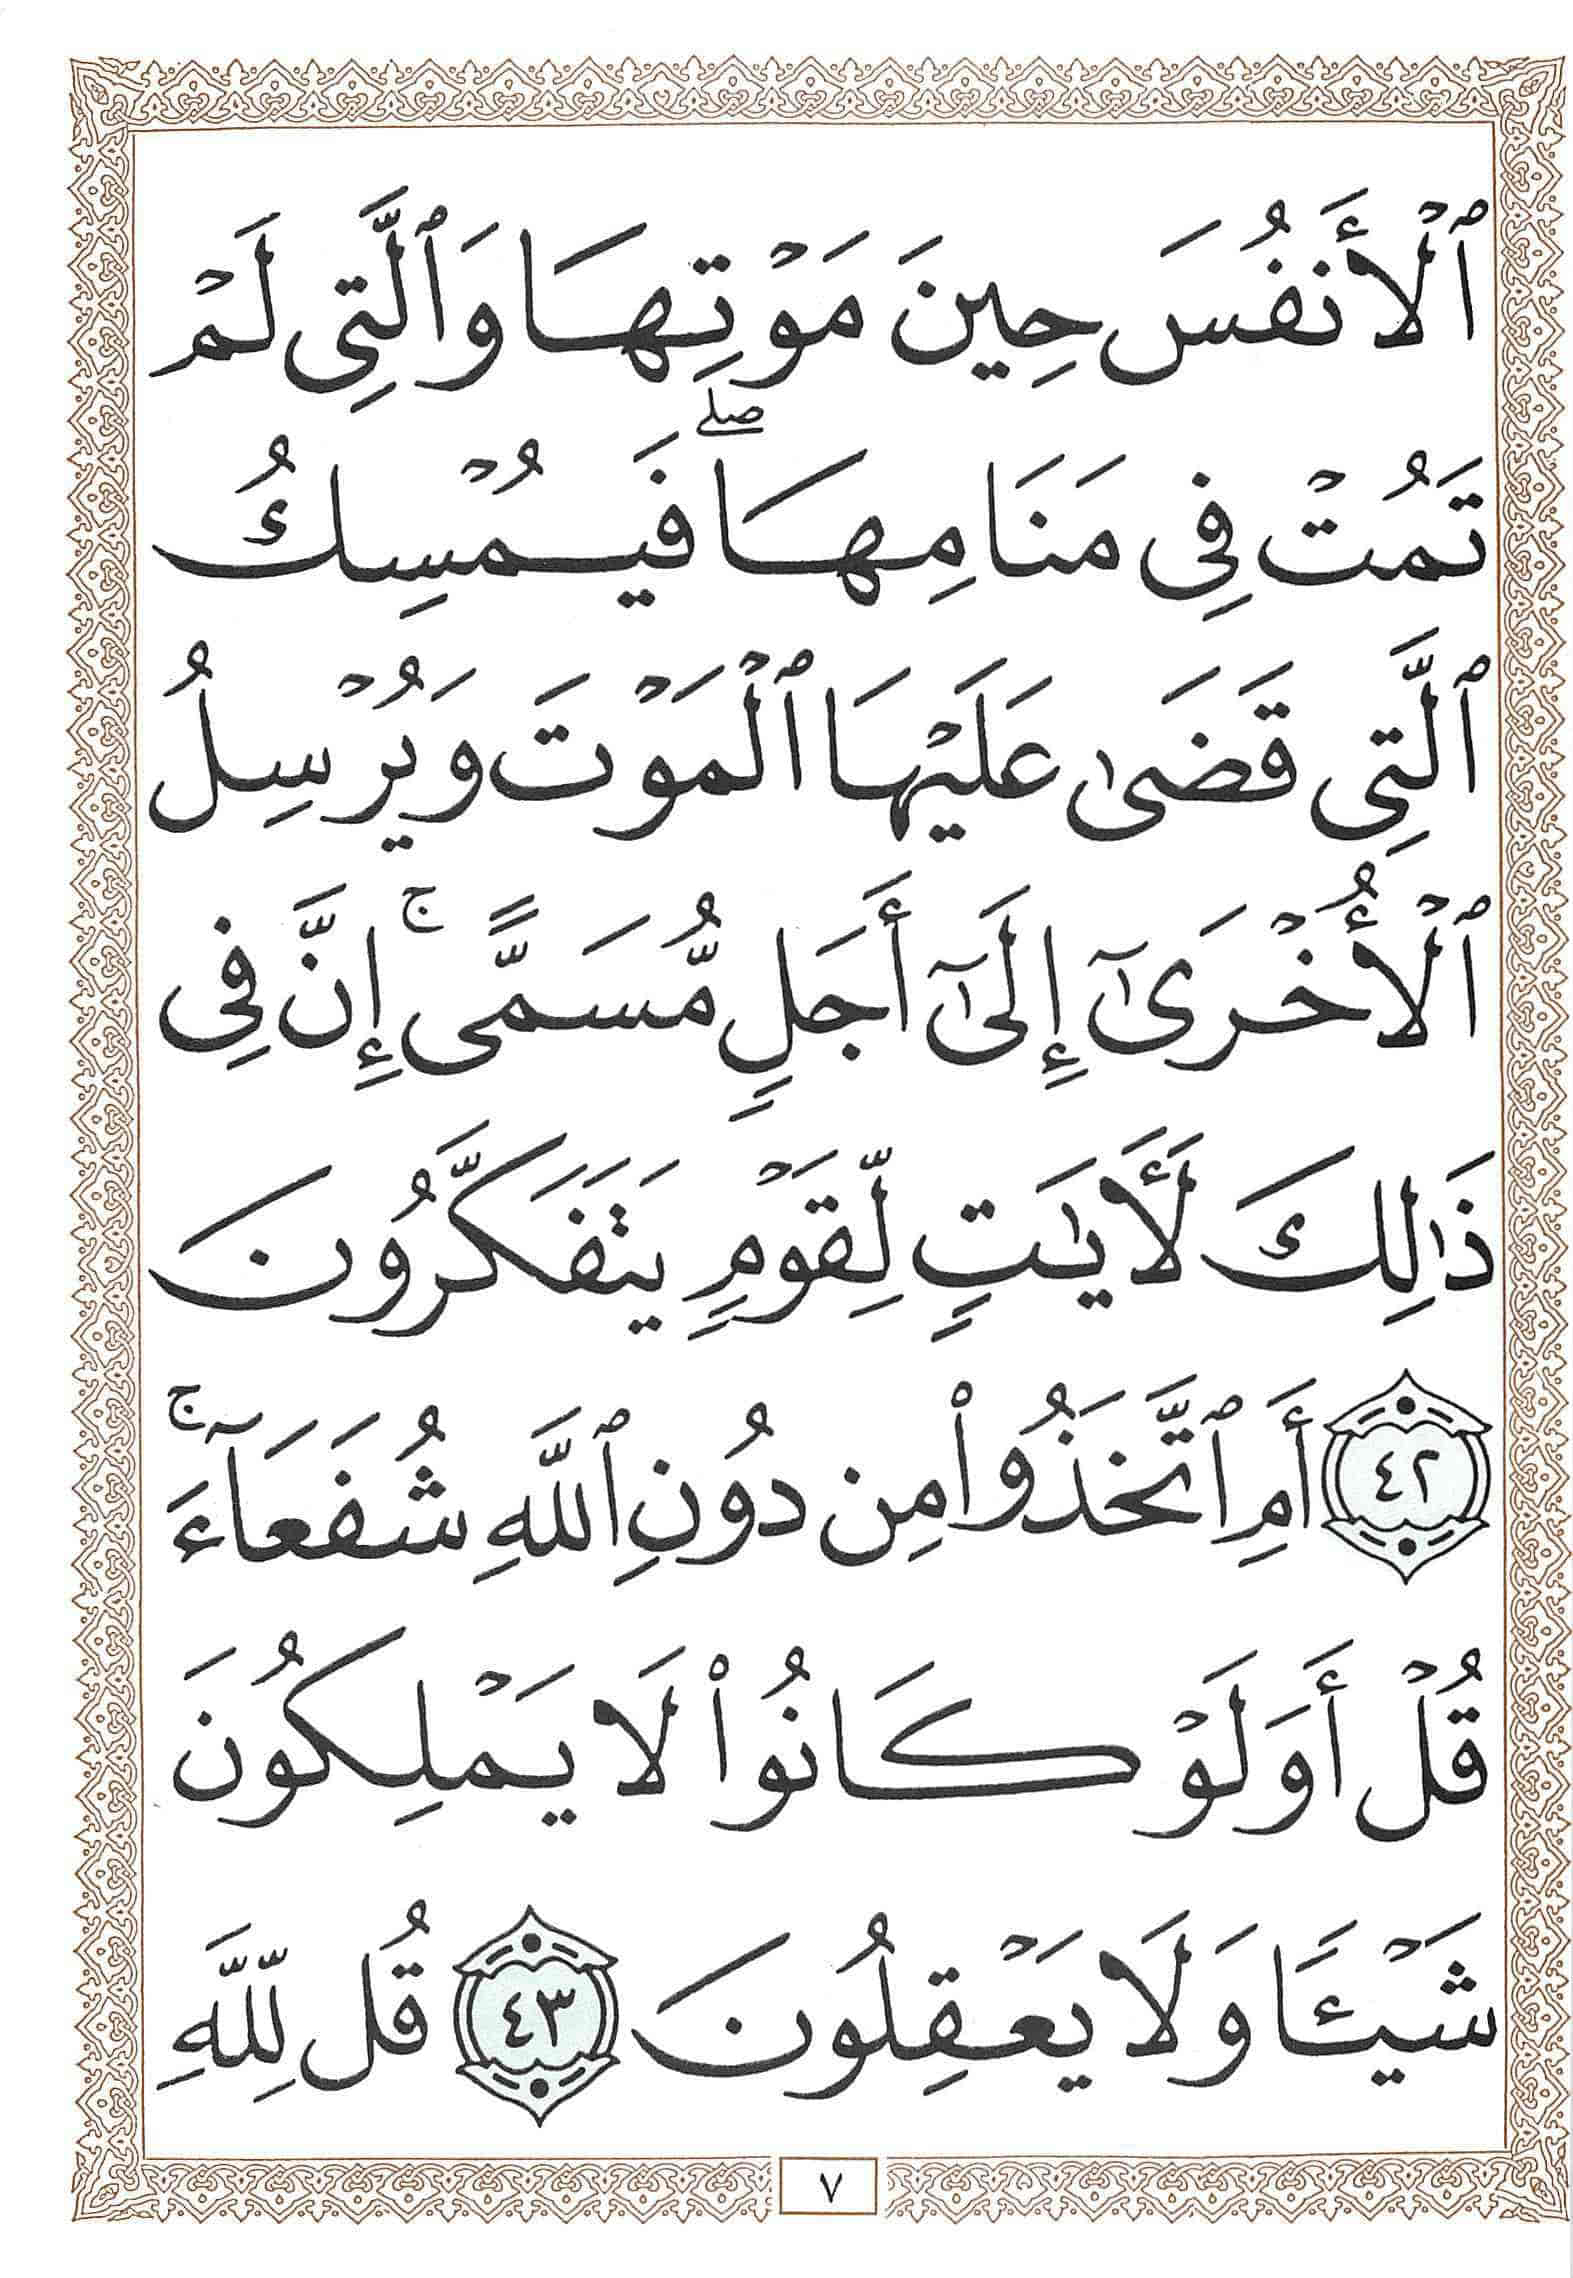 ٱلْأَنفُسَ حِينَ مَوْتِهَا وَٱلَّتِى لَمْ
تَمُتْ فِى مَنَامِهَا ۖ فَيُمْسِكُ
ٱلَّتِى قَضَىٰ عَلَيْهَا ٱلْمَوْتَ وَيُرْسِلُ
ٱلْأُخْرَىٰٓ إِلَىٰٓ أَجَلٍ مُّسَمًّى ۚ إِنَّ فِى
ذَٰلِكَ لَأَيَٰتٍ لِّقَوْمٍ يَتَفَكَّرُونَ
٤٢ أَمِ ٱتَّخَذُوا۟ مِن دُونِ ٱللَّهِ شُفَعَآءَ ۚ
قُلْ أَوَلَوْ كَانُوا۟ لَا يَمْلِكُونَ
شَيْـًٔا وَلَا يَعْقِلُونَ ٤٣ قُل لِّلَّهِ
٧